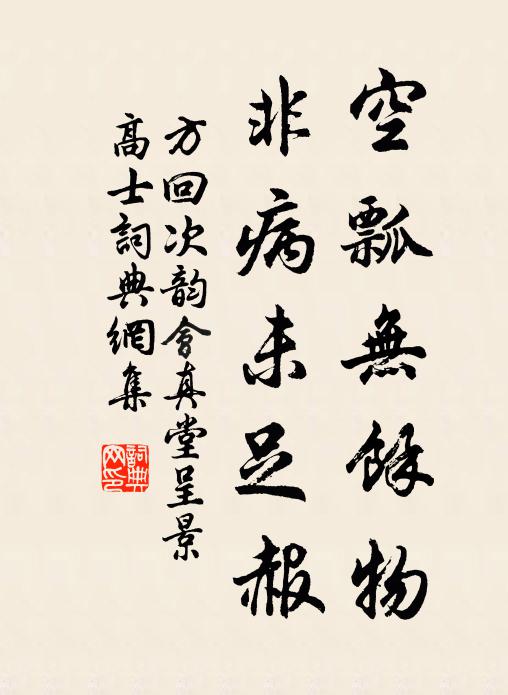 空瓢無餘物
非病未足赧
方回次韵會真堂呈景
高士詞典網集
詞典
网印